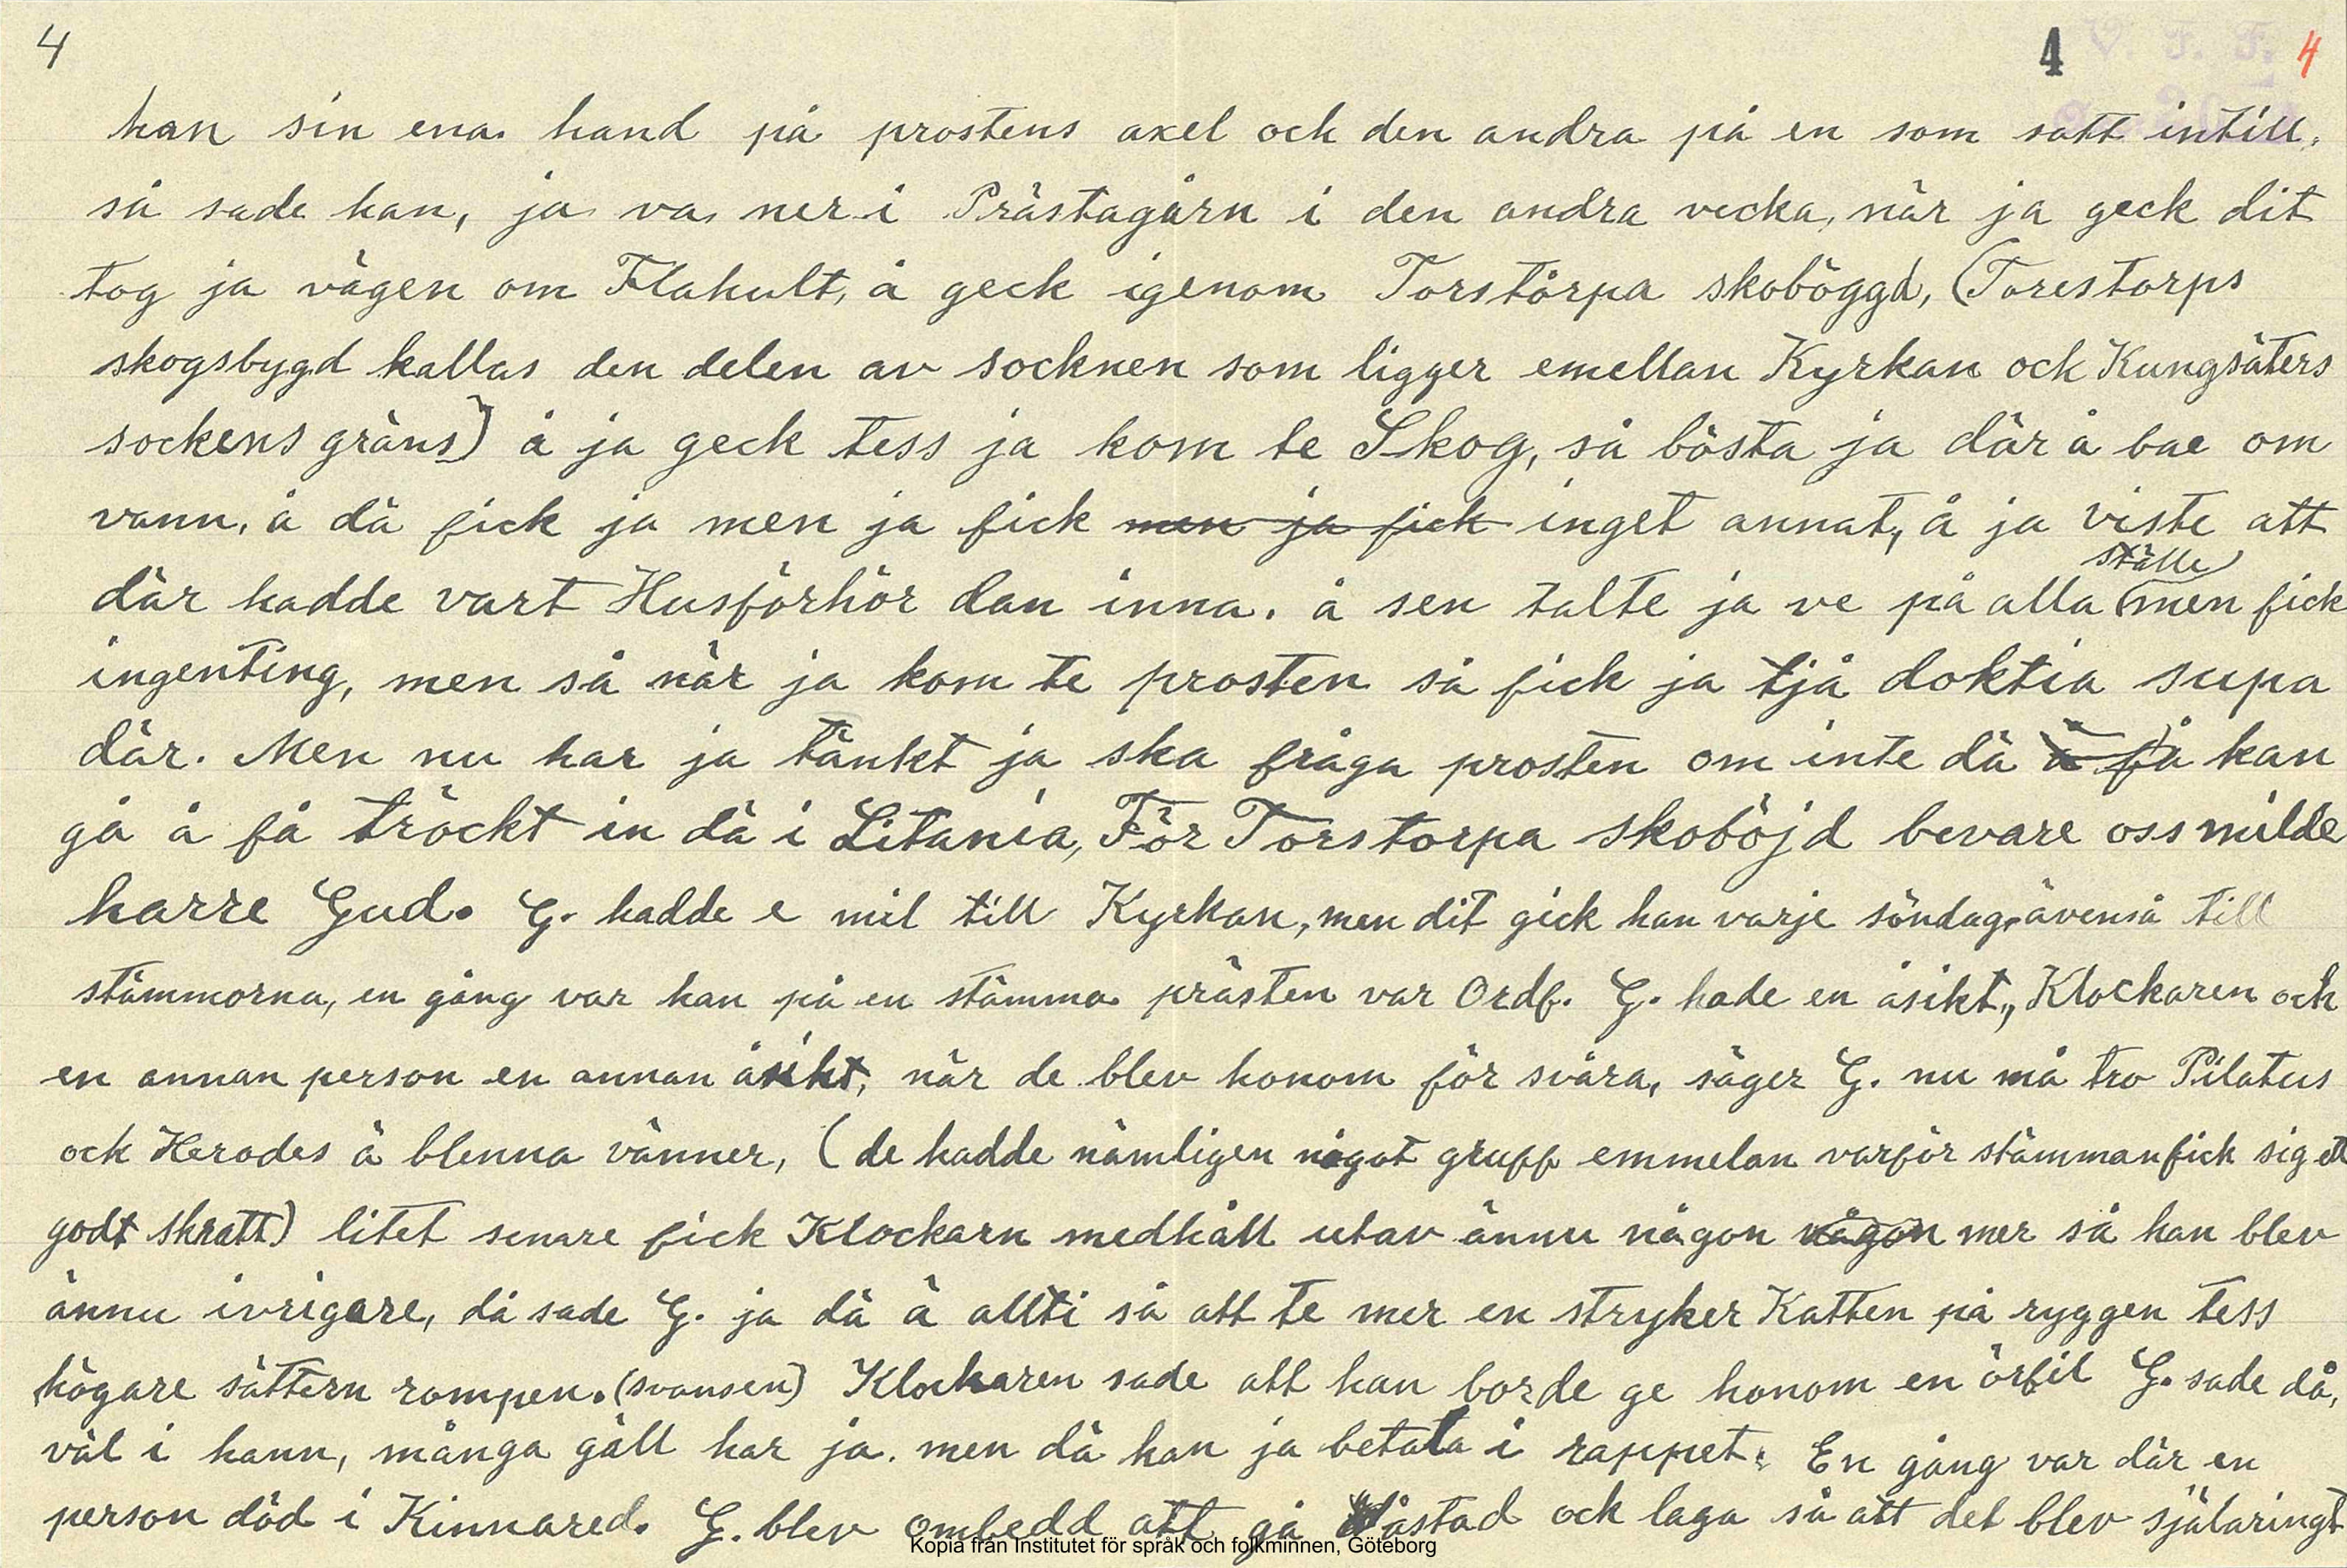 4 4 V. F. F. 4
han sin ena hand på prostens axel och den andra på en som satt intill,
så sade han, ja va ner i Prästagårn i den andra vecka, när ja geck dit
tog ja vägen om Flahult, å geck igenom Torstårpa skoböggd, (Torestorps
skogsbygd kallas den delen av socknen som ligger emellan Kyrkan och Kungsäters
sockens gräns) å ja geck tess ja kom te Skog, så bösta ja där å bae om
vann, å dä fick ja men ja fick men ja fick inget annat, å ja viste att
ställe
där hadde vart Husförhör dan inna. å sen talte ja ve på alla men fick
ingenting, men så när ja kom te prosten så fick ja tjå doktia supa
där. Men nu har ja tänkt ja ska fråga prosten om inte dä å få kan
gå å få tröckt in dä i Litania, För Torstorpa skoböjd bevare oss milde
harre Gud. G. hadde e mil till Kyrkan, men dit gick han varje söndag, ävenså till
stämmorna, en gång var han på en stämma prästen var Ordf. G. hade en åsikt, Klockaren och
en annan person en annan åsikt, när de blev honom för svåra, säger G. nu må tro Pilatus
ock Herodes ä blenna vänner, (de hadde nämligen något gruff emmelan varför stämman fick sig ett
godt skratt) litet senare fick Klockarn medhåll utav ännu någon någon mer så han blev
ännu ivrigare, då sade G. ja dä ä allti så att te mer en stryker Katten på ryggen tess
högare sättern rompen. (svansen) Klockaren sade att han borde ge honom en örfil G. sade då,
väl i hann, många gäll har ja. men dä kan ja betala i rappet. En gång var där en
person död i Kinnared. G. blev ombedd att gå åstad ock laga så att det blev själaringt
Kopia från Institutet för språk och folkminnen, Göteborg